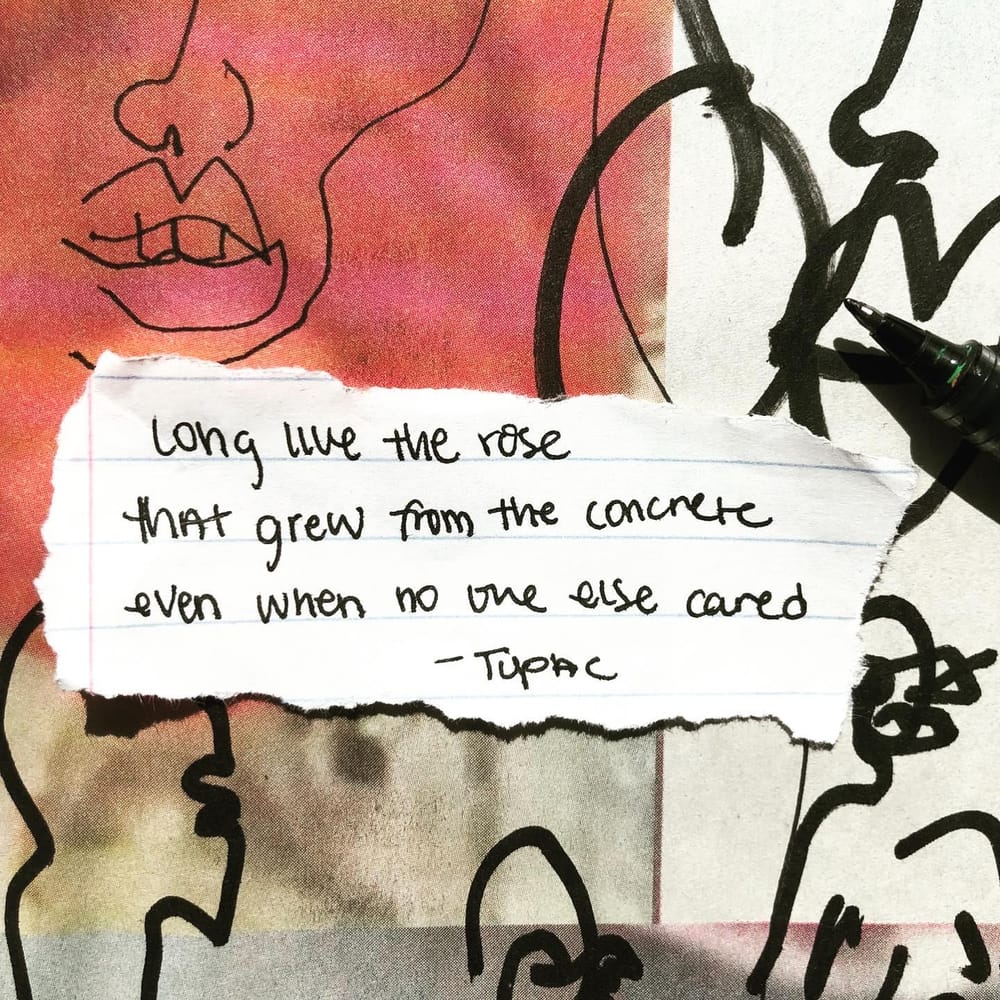 Long live the rose
that grew from the concrete
even when no one else cared
- Tupac